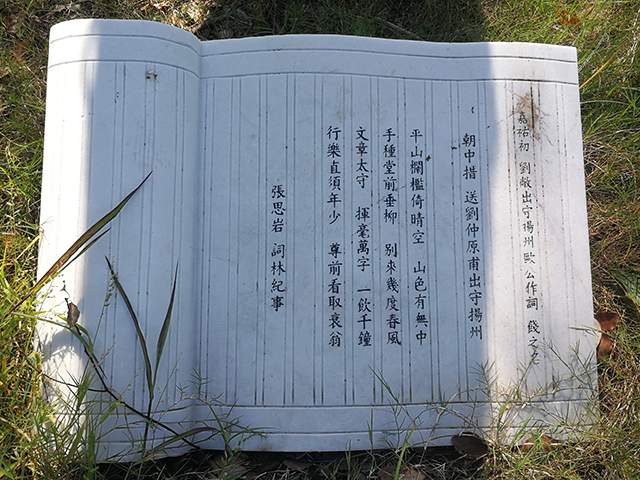 嘉祐初 劉敞出守揚州 歐公作詞 餞之云
朝中措 送劉仲原甫出守揚州
平山欄檻倚晴空 山色有無中
手種堂前垂柳 別來幾度春風
文章太守 揮毫萬字 一飲千鐘
行樂直須年少 尊前看取衰翁
張思岩 詞林紀事